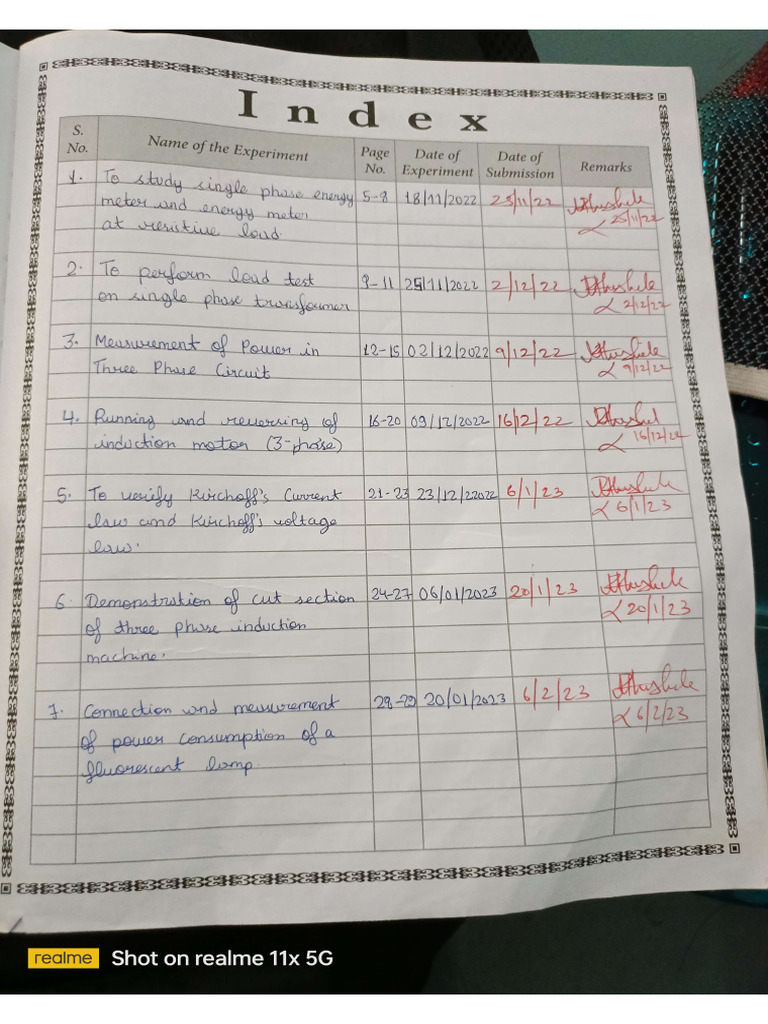 Index
S. No. Name of the Experiment Page No. Date of Experiment Date of Submission Remarks
1. To study single phase energy 5-8 18/11/2022 25/11/22
meter and energy meter 25/11/22
at resistive load.
2. To perform load test 9-11 25/11/2022 2/12/22
on single phase transformer 2/12/22
3. Measurement of Power in 12-15 02/12/2022 9/12/22
Three Phase Circuit 9/12/22
4. Running and reversing of 16-20 09/12/2022 16/12/22
induction motor (3-phase) 16/12/22
5. To verify Kirchoff's Current 21-23 23/12/22022 6/1/23
law and Kirchoff's voltage 6/1/23
law.
6. Demonstration of cut section 24-27 06/01/2023 20/1/23
of three phase induction 20/1/23
machine.
7. Connection and measurement 28-29 20/01/2023 6/2/23
of power consumption of a 6/2/23
fluorescent lamp.
realme Shot on realme 11x 5G